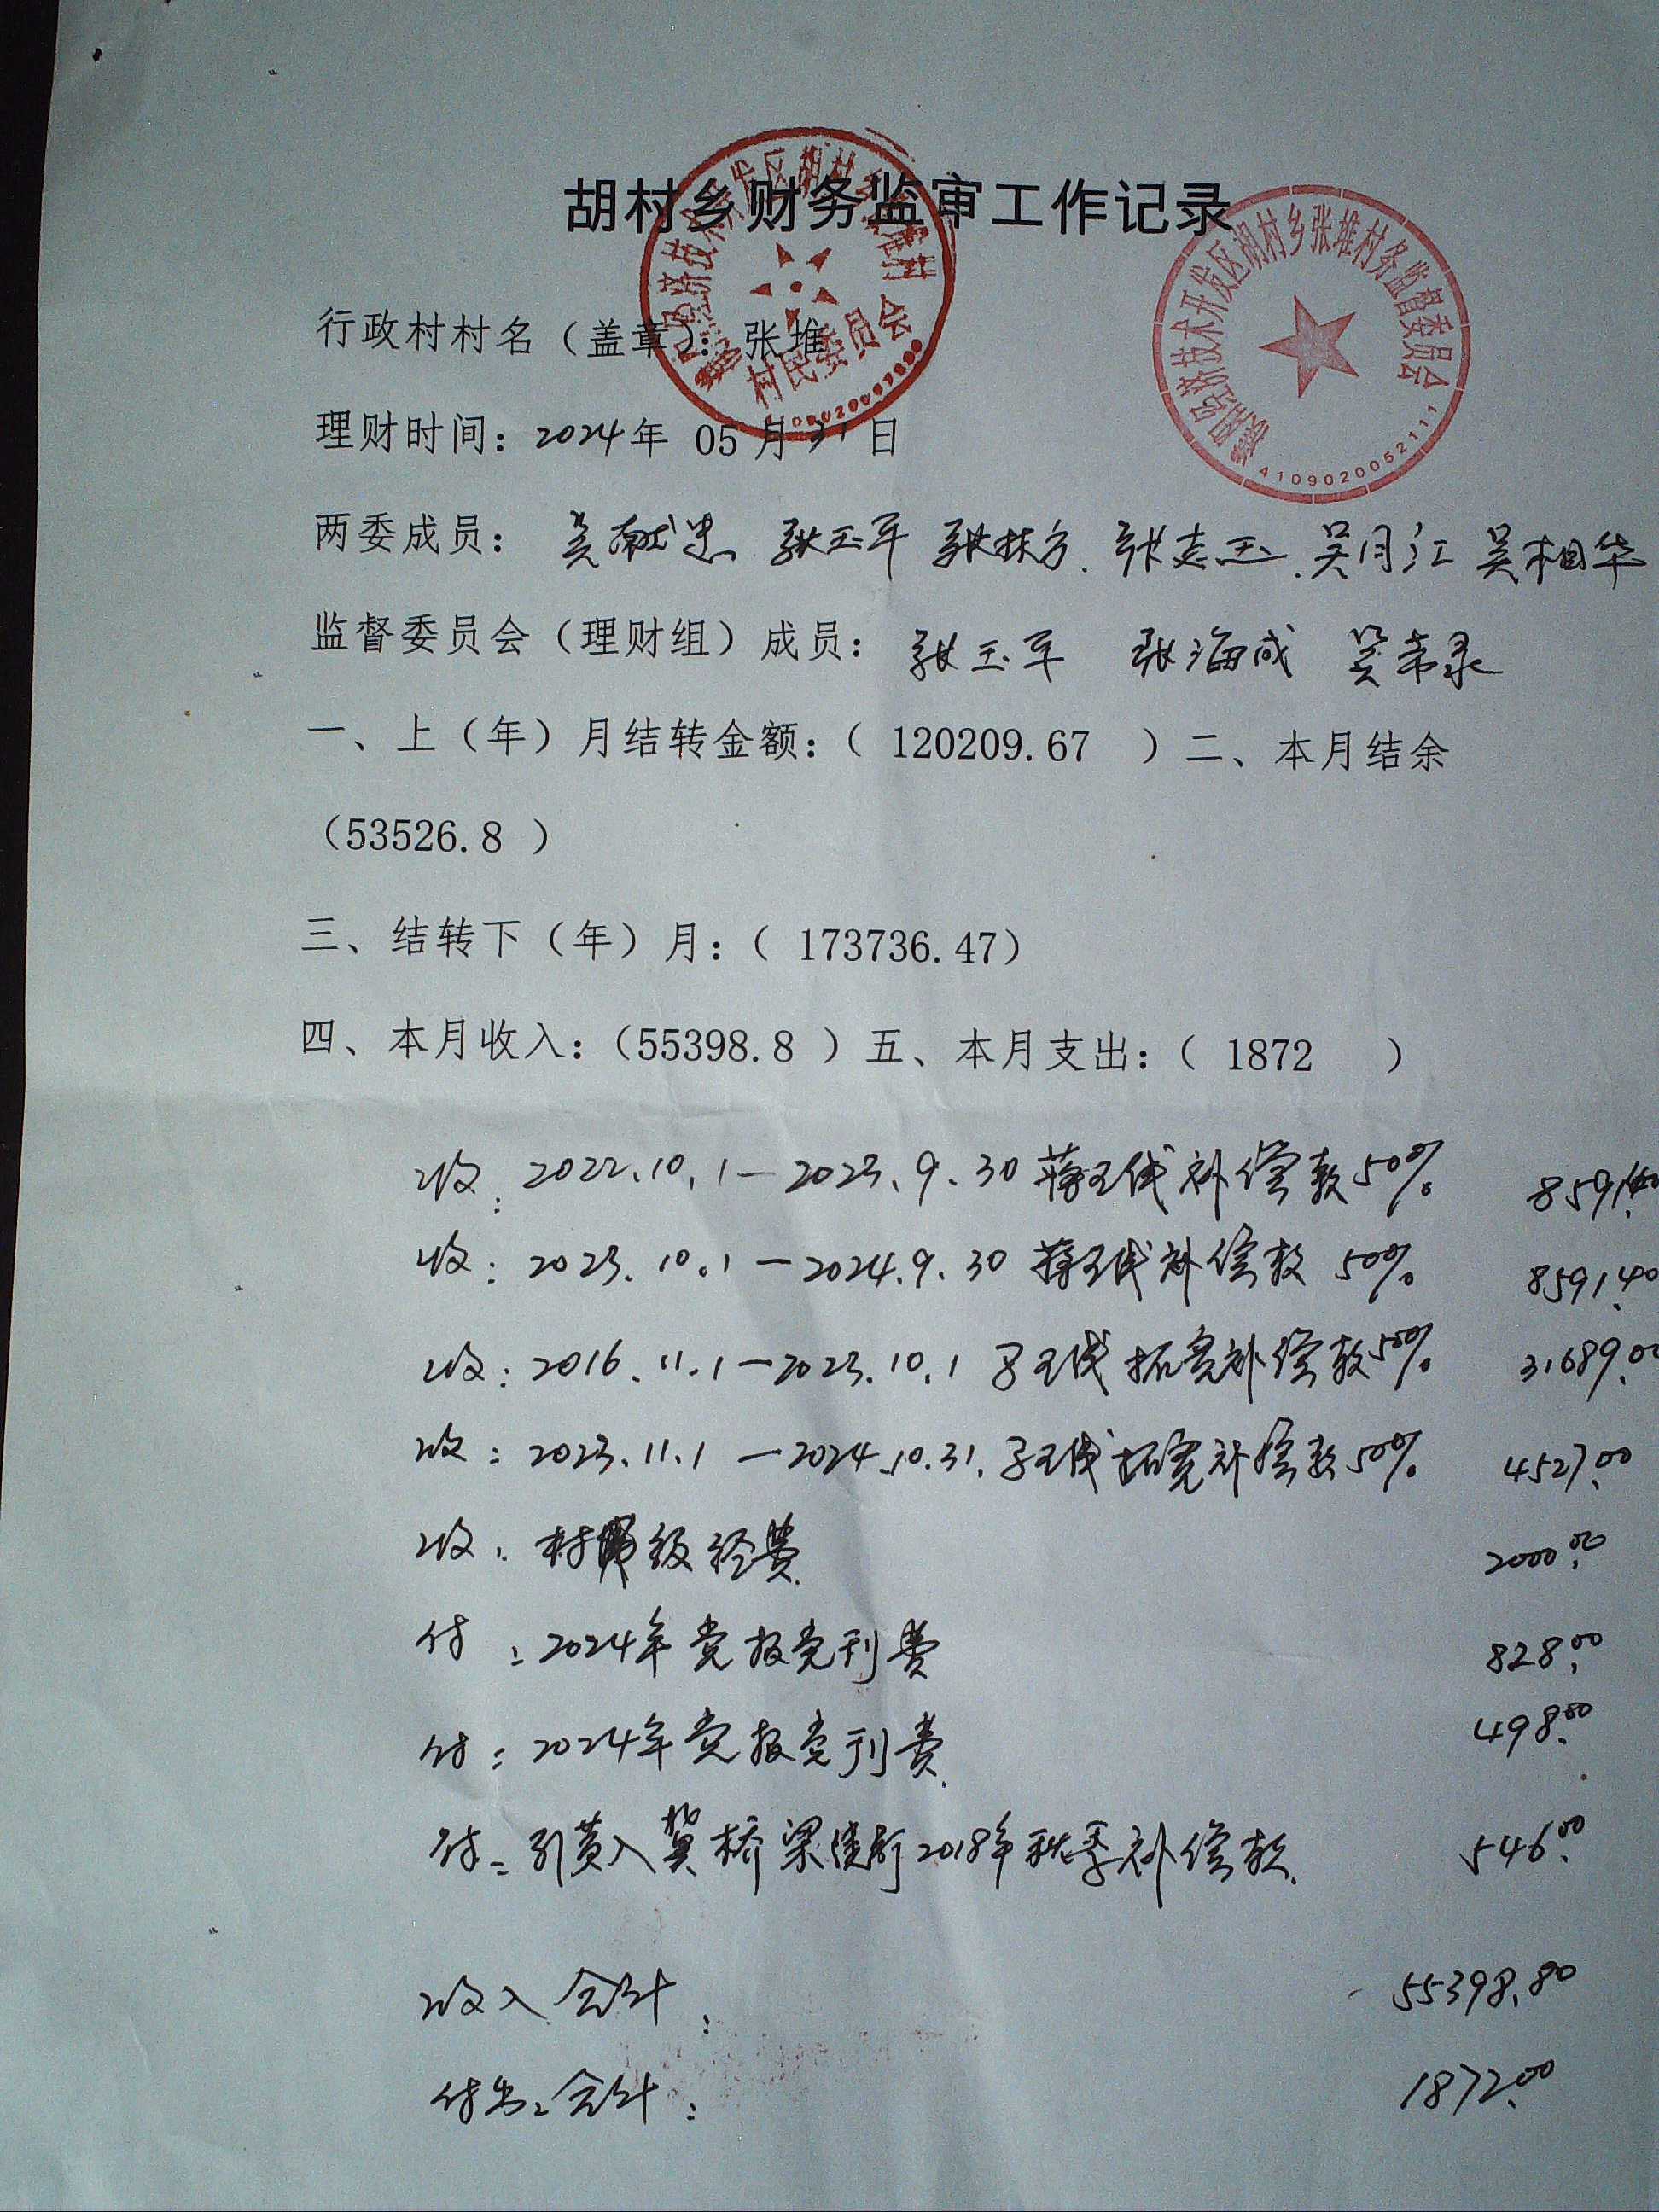 胡村乡财务监审工作记录
行政村村名（盖章）：张堆
村民委员会
濮阳经济技术开发区胡村乡张堆村务监督委员会
4109020052111
理财时间：2024年 05月31日
两委成员： 吴献忠 张玉军 张林方 张志玉 吴月江 吴相华
监督委员会（理财组）成员： 张玉军 张海成 吴常录
一、上（年）月结转金额：（ 120209.67 ）二、本月结余
（53526.8 ）
三、结转下（年）月：（ 173736.47）
四、本月收入：（55398.8 ）五、本月支出：（ 1872 ）
收：2022.10.1—2023.9.30 蒋王线补偿款50% 8591.40
收：2023.10.1—2024.9.30 蒋王线补偿款 50% 8591.40
收：2016.11.1—2023.10.1 子王线拓宽补偿款50% 31689.00
收：2023.11.1—2024.10.31.子王线拓宽补偿款50% 4527.00
收：村级经费 2000.00
付：2024年党报党刊费 828.00
付：2024年党报党刊费 498.00
付：引黄入冀桥梁 2018年秋季补偿款 546.00
收入合计： 55398.80
付出：合计： 1872.00